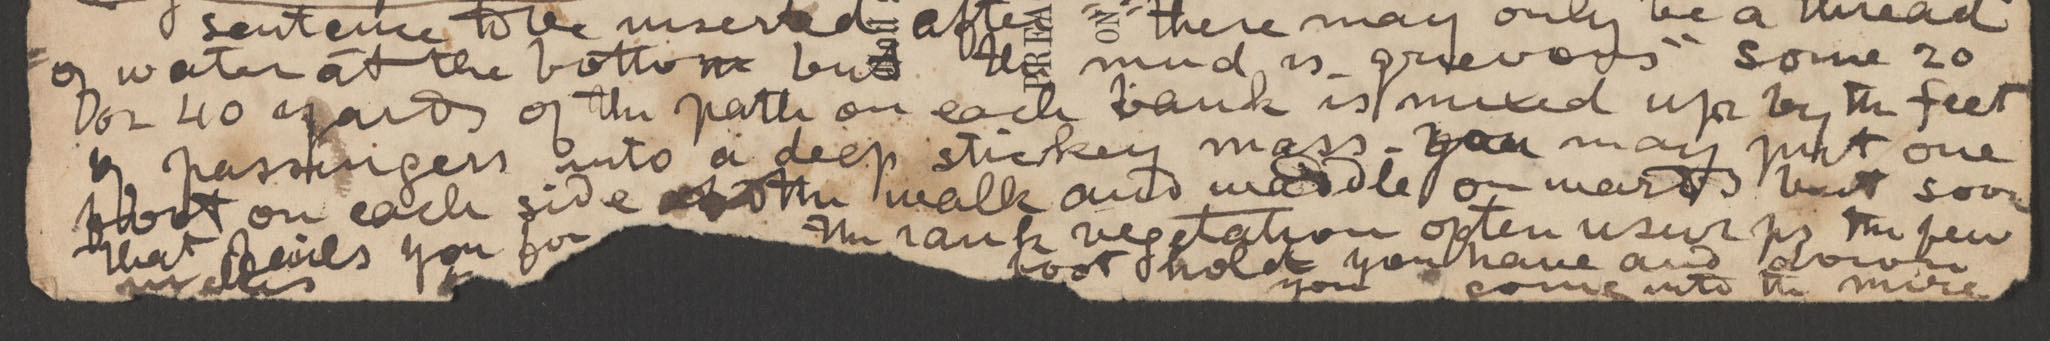 sentence to be inserted after "there may only be a thread
of water at the bottom but the mud is grievous" some 20
or 40 yards of the path on each bank is mixed up by the feet
of passengers into a deep stickey mass - you may put one
foot on each side of the walk and waddle onwards but soon
that fails you for the rank vegetation often usurps the few
foot hold you have and down
you come into the mire